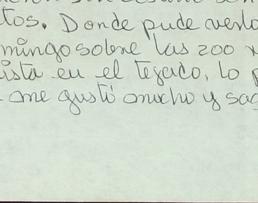 tos. Donde pude verlo
mingo sobre las 200
ista en el tejado, lo p
me gustó mucho y sac